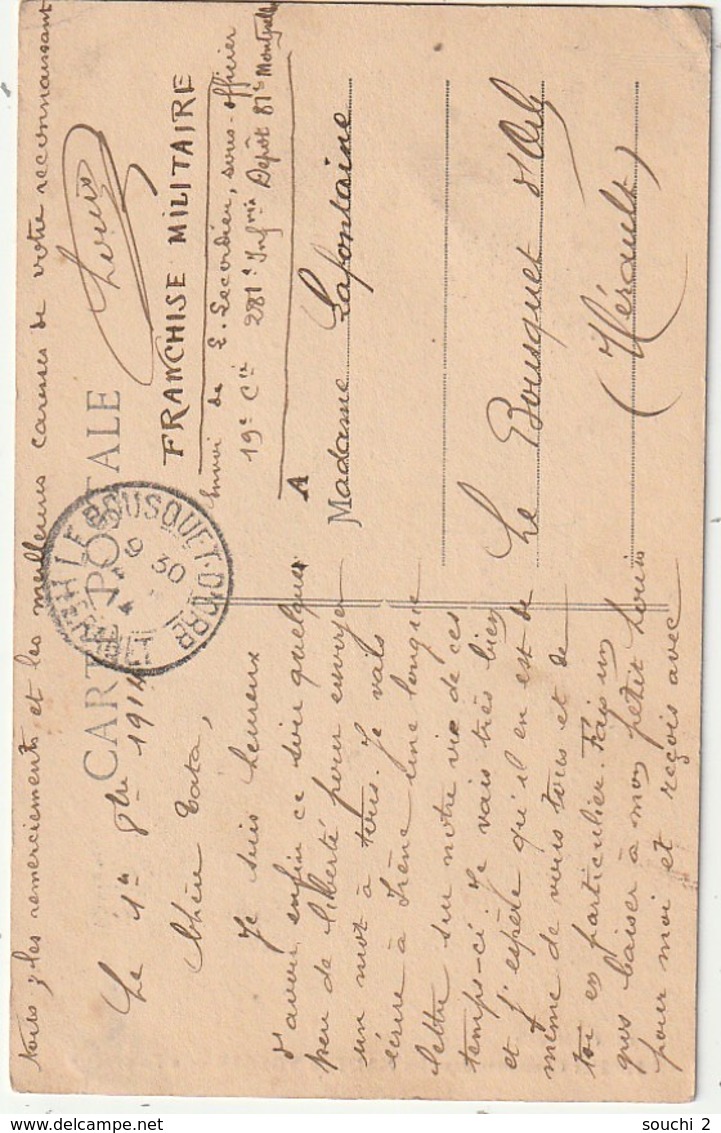 CARTE POSTALE
Le 1er 8bre 1914
Chère Tata,
Je suis heureux
d'avoir enfin ce soir quelque
peu de liberté pour envoyer
un mot à tous. Je vais
écrire à Irène une longue
lettre sur notre vie de ces
temps-ci. Je vais très bien
et j'espère qu'il en est de
même de vous tous et de
toi en particulier. Fais un
gros baiser à mon petit Louis
pour moi et reçois avec
tous les remerciements et les meilleures caresses de votre reconnaissant
Louis
FRANCHISE MILITAIRE
Envoi de L. Lecordier, sous-officier
19e Cie 281e Infrie Dépôt 81e Montpellier
A
Madame Lafontaine
Le Bousquet d'Orb
(Hérault)
LE BOUSQUET-D'ORB
HERAULT
9 30
14
souchi 2